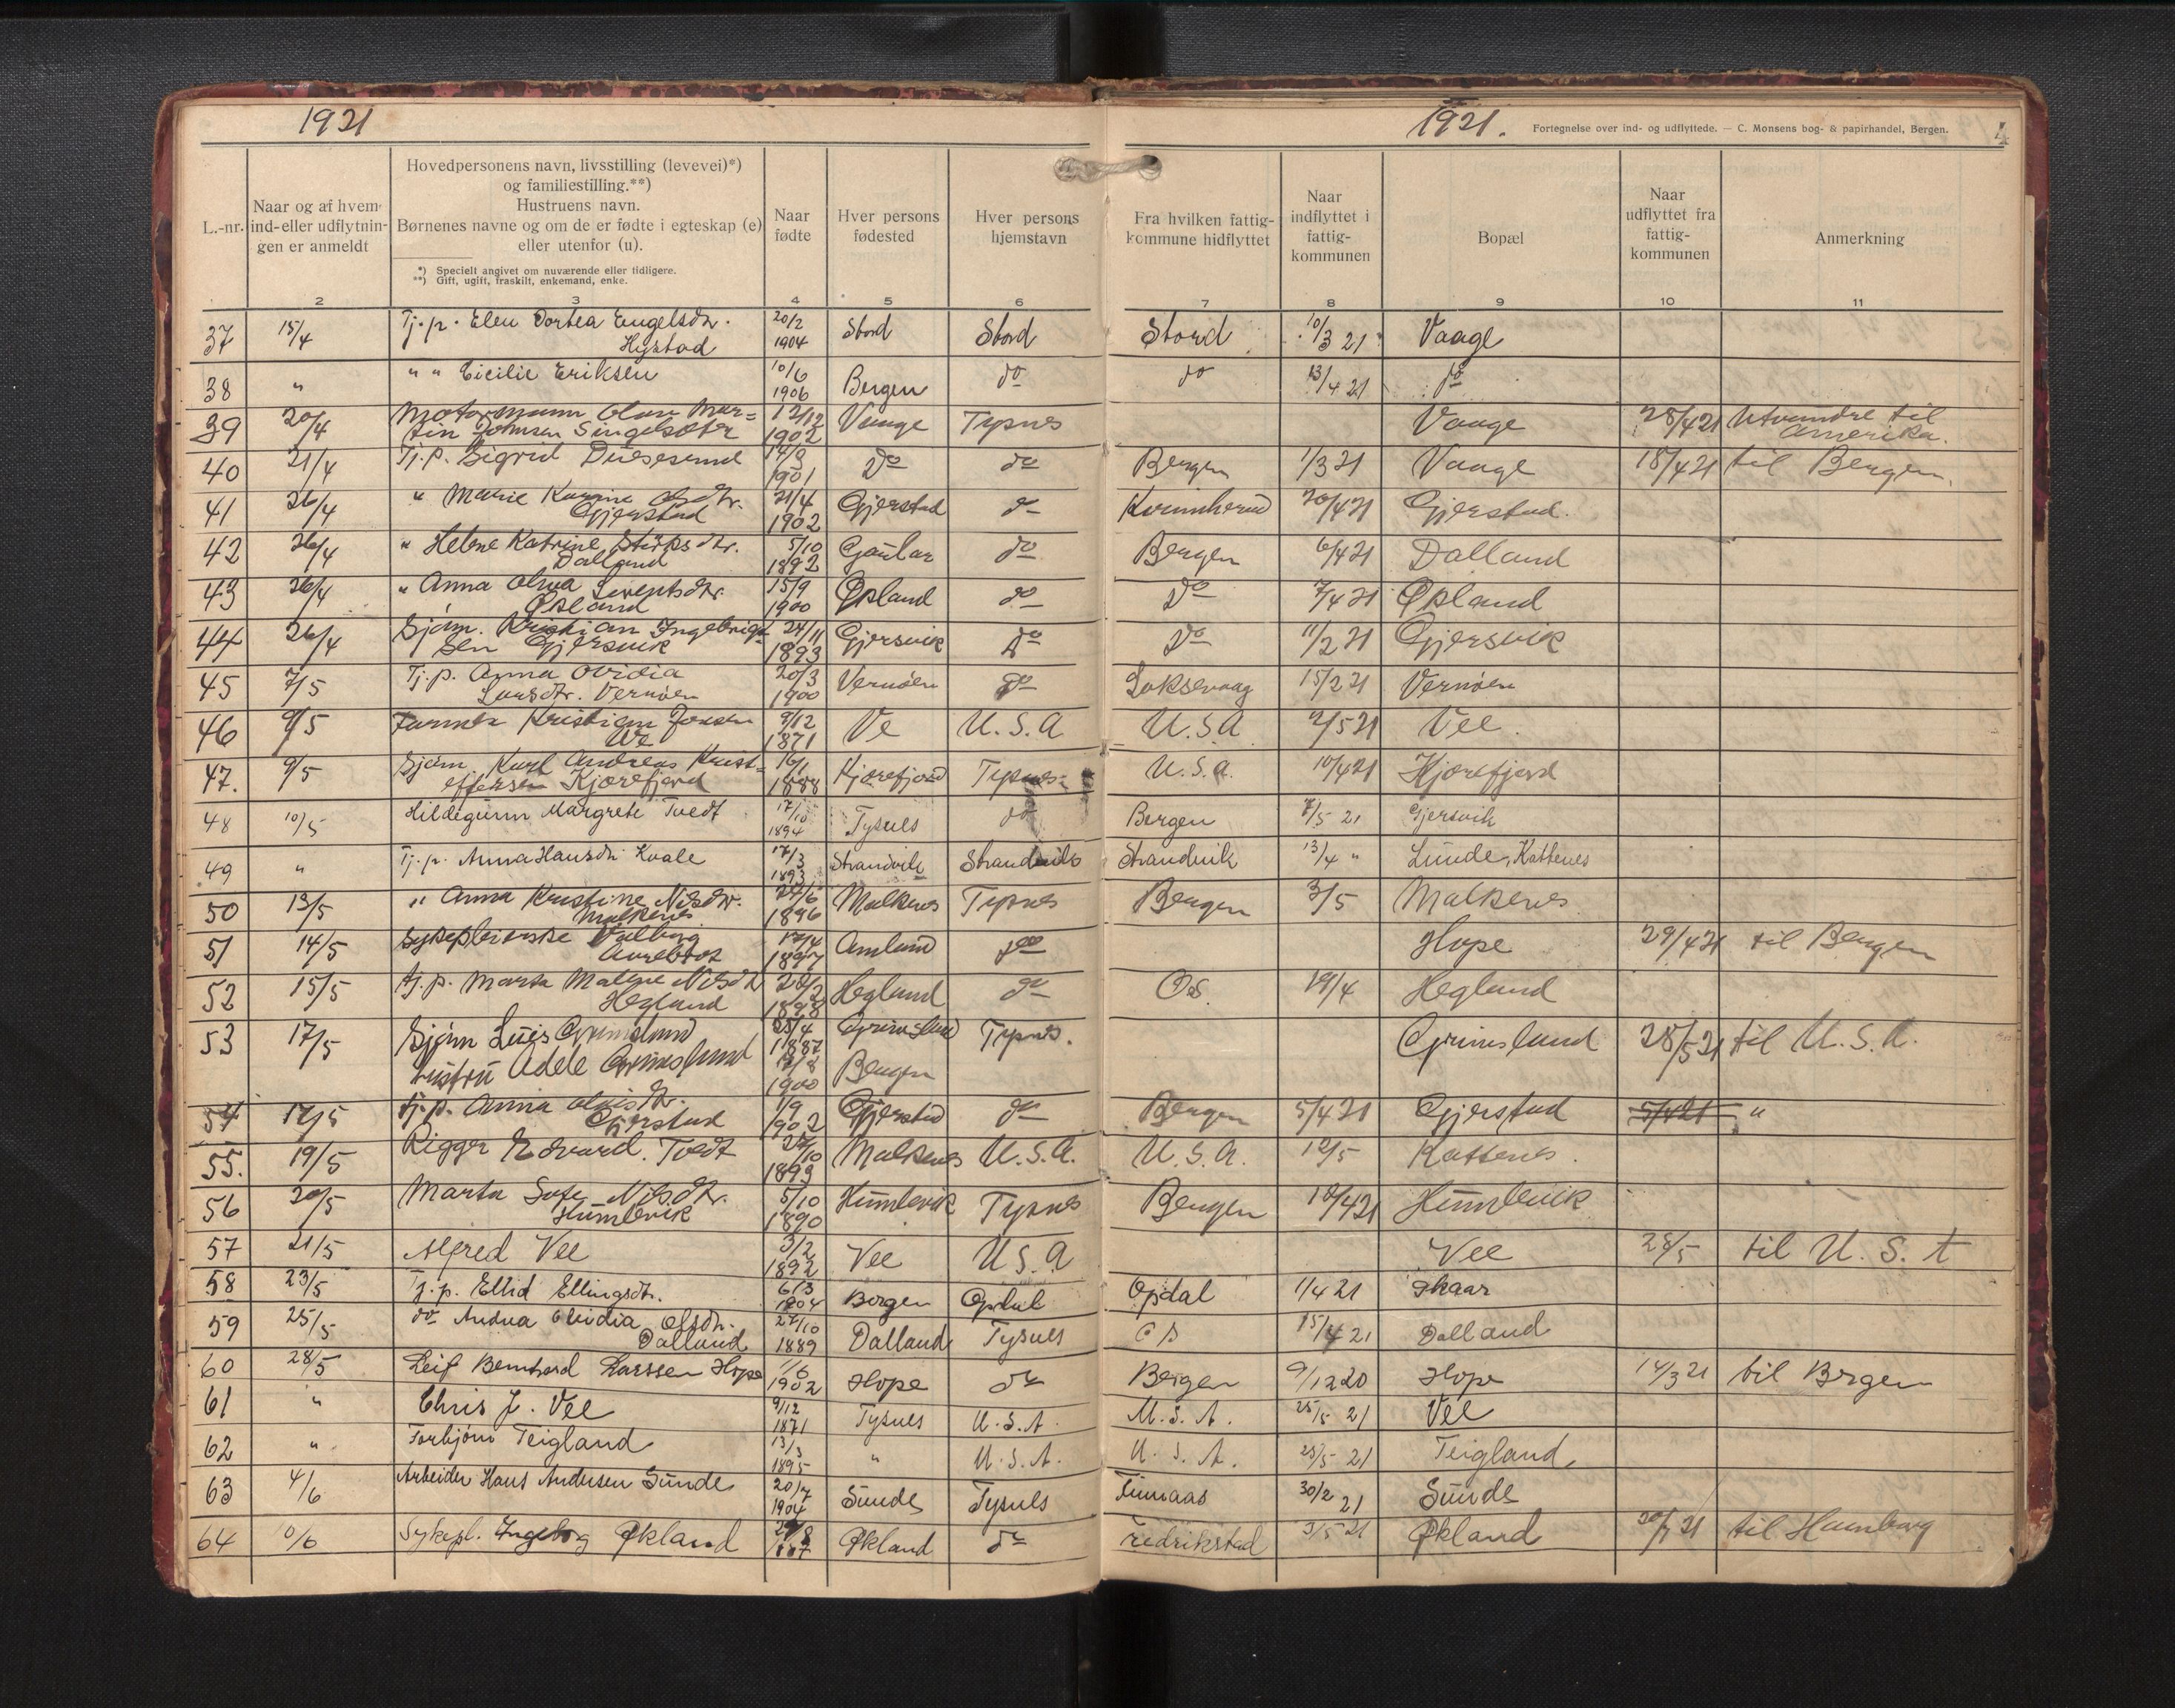 1921
1921.
Fortegnelse over ind- og udflyttede. — C. Monsens bog- & papirhandel, Bergen.
4
L.-nr.
Naar og af hvem ind-eller udflytningen er anmeldt
Hovedpersonens navn, livsstilling (levevei)*)
og familiestilling.**)
Hustruens navn.
Børnenes navne og om de er fødte i egteskap (e)
eller utenfor (u).
*) Specielt angivet om nuværende eller tidligere.
**) Gift, ugift, fraskilt, enkemand, enke.
Naar fødte
Hver persons fødested
Hver persons hjemstavn
Fra hvilken fattigkommune hidflyttet
Naar indflyttet i fattigkommunen
Bopæl
Naar udflyttet fra fattigkommunen
Anmerkning
2 3 4 5 6 7 8 9 10 11
37 15/4 Tj.p. Elen Dortea Engelsdtr. Hystad 20/2 1904 Stord Stord Stord 10/3 21 Vaage
38 " " " Cicilie Eriksen 10/6 1906 Bergen do do 13/4 21 do
39 20/4 Motormann Olav Martin Johnsen Singelsæter 12/12 1902 Vaage Tysnes Vaage 28/4 21 Utvandre til Amerika.
40 21/4 Tj.p. Sigrid Duesesund 1901 Do do Bergen 1/3 21 Vaage 18/4 21 til Bergen.
41 26/4 " Marie Karine Olsdtr. Gjerstad 21/4 1902 Gjerstad do Kvinnherad 20/4 21 Gjerstad
42 26/4 " Helene Katrine Dalland 5/10 1892 Gaular do Bergen 6/4 21 Dalland
43 26/4 " Anna Olina Sivertsdtr. Økland 15/9 1900 Økland do Do 7/4 21 Økland
44 26/4 Sjøm. Kristian Ingebrigtsen Gjersvik 24/11 1893 Gjersvik do Do 11/2 21 Gjersvik
45 7/5 Tj.p. Anna Ovidia Larsdtr. Vernøen 20/3 1900 Vernøen do Laksevaag 15/2 21 Vernøen
46 9/5 Farmer Kristian Jonsen Ve 9/12 1871 Ve U.S.A U.S.A 2/5 21 Vee
47. 9/5 Sjøm. Karl Andreas Kristoffersen Kjærefjord 16/1 1888 Kjærefjord Tysnes U.S.A. 10/4 21 Kjærefjord
48 10/5 Hildegunn Margrete Tvedt 17/10 1894 Tysnes do Bergen 7/5 21 Gjersvik
49 " Tj.p. Anna Hansdtr Kvale 17/3 1893 Strandvik Strandvik Strandvik 13/4 " Lunde, Kattenes
50 13/5 " Anna Kristine Nilsdtr. Malkenes 24/6 1896 Malkenes Tysnes Bergen 3/5 Malkenes
51 14/5 Sykepleierske Valborg 17/4 1897 Amland do Hope 29/4 21 til Bergen
52 15/5 Tj.p. Marta Malene Nilsdtr Hegland 28/2 1898 Hegland do Os. 19/4 Hegland
53 17/5 Sjøm Luis Grimslund 25/4 1887 Grimslund Tysnes. Grimslund 28/5 21 til U.S.A.
hustru Adele Grimslund 1900 Bergen
54 17/5 Tj.p. Anna Olaisdtr. Gjerstad 1/9 1902 Gjerstad do Bergen 5/4 21 Gjerstad 5/4 21 "
55. 19/5 Rigger Edvard Tvedt 1893 Malkenes U.S.A. U.S.A. 12/5 Kattenes.
56 20/5 Marta Sofie Nilsdtr. Humlevik 5/10 1890 Humlevik Tysnes Bergen 18/4 21 Humlevik
57 21/5 Alfred Vee 3/2 1892 Vee U.S.A Vee 28/5 til U.S.A
58 23/5 Tj.p. Ellid Ellingsdtr. 6/3 1904 Bergen Opdal Opdal 1/4 21 Skaar
59 25/5 do Andrea Olivdia Olsdtr. Dalland 27/10 1889 Dalland Tysnes Os 15/4 21 Dalland
60 28/5 Leif Bernhard Larssen Hope 1/6 1902 Hope do Bergen 9/12 20 Hope 14/3 21 til Bergen
61 " Chris J. Vee 9/12 1871 Tysnes U.S.A. U.S.A. 25/5 21 Vee
62 " Torbjørn Teigland 13/3 1895 " U.S.A. U.S.A. 25/5 21 Teigland
63 4/6 Arbeider Hans Andersen Sunde 20/7 1904 Sunde Tysnes Finnaas 30/2 21 Sunde
64 10/6 Sykepl. Ingeborg Økland Økland do Fredrikstad 3/5 21 Økland 21 til Hamborg